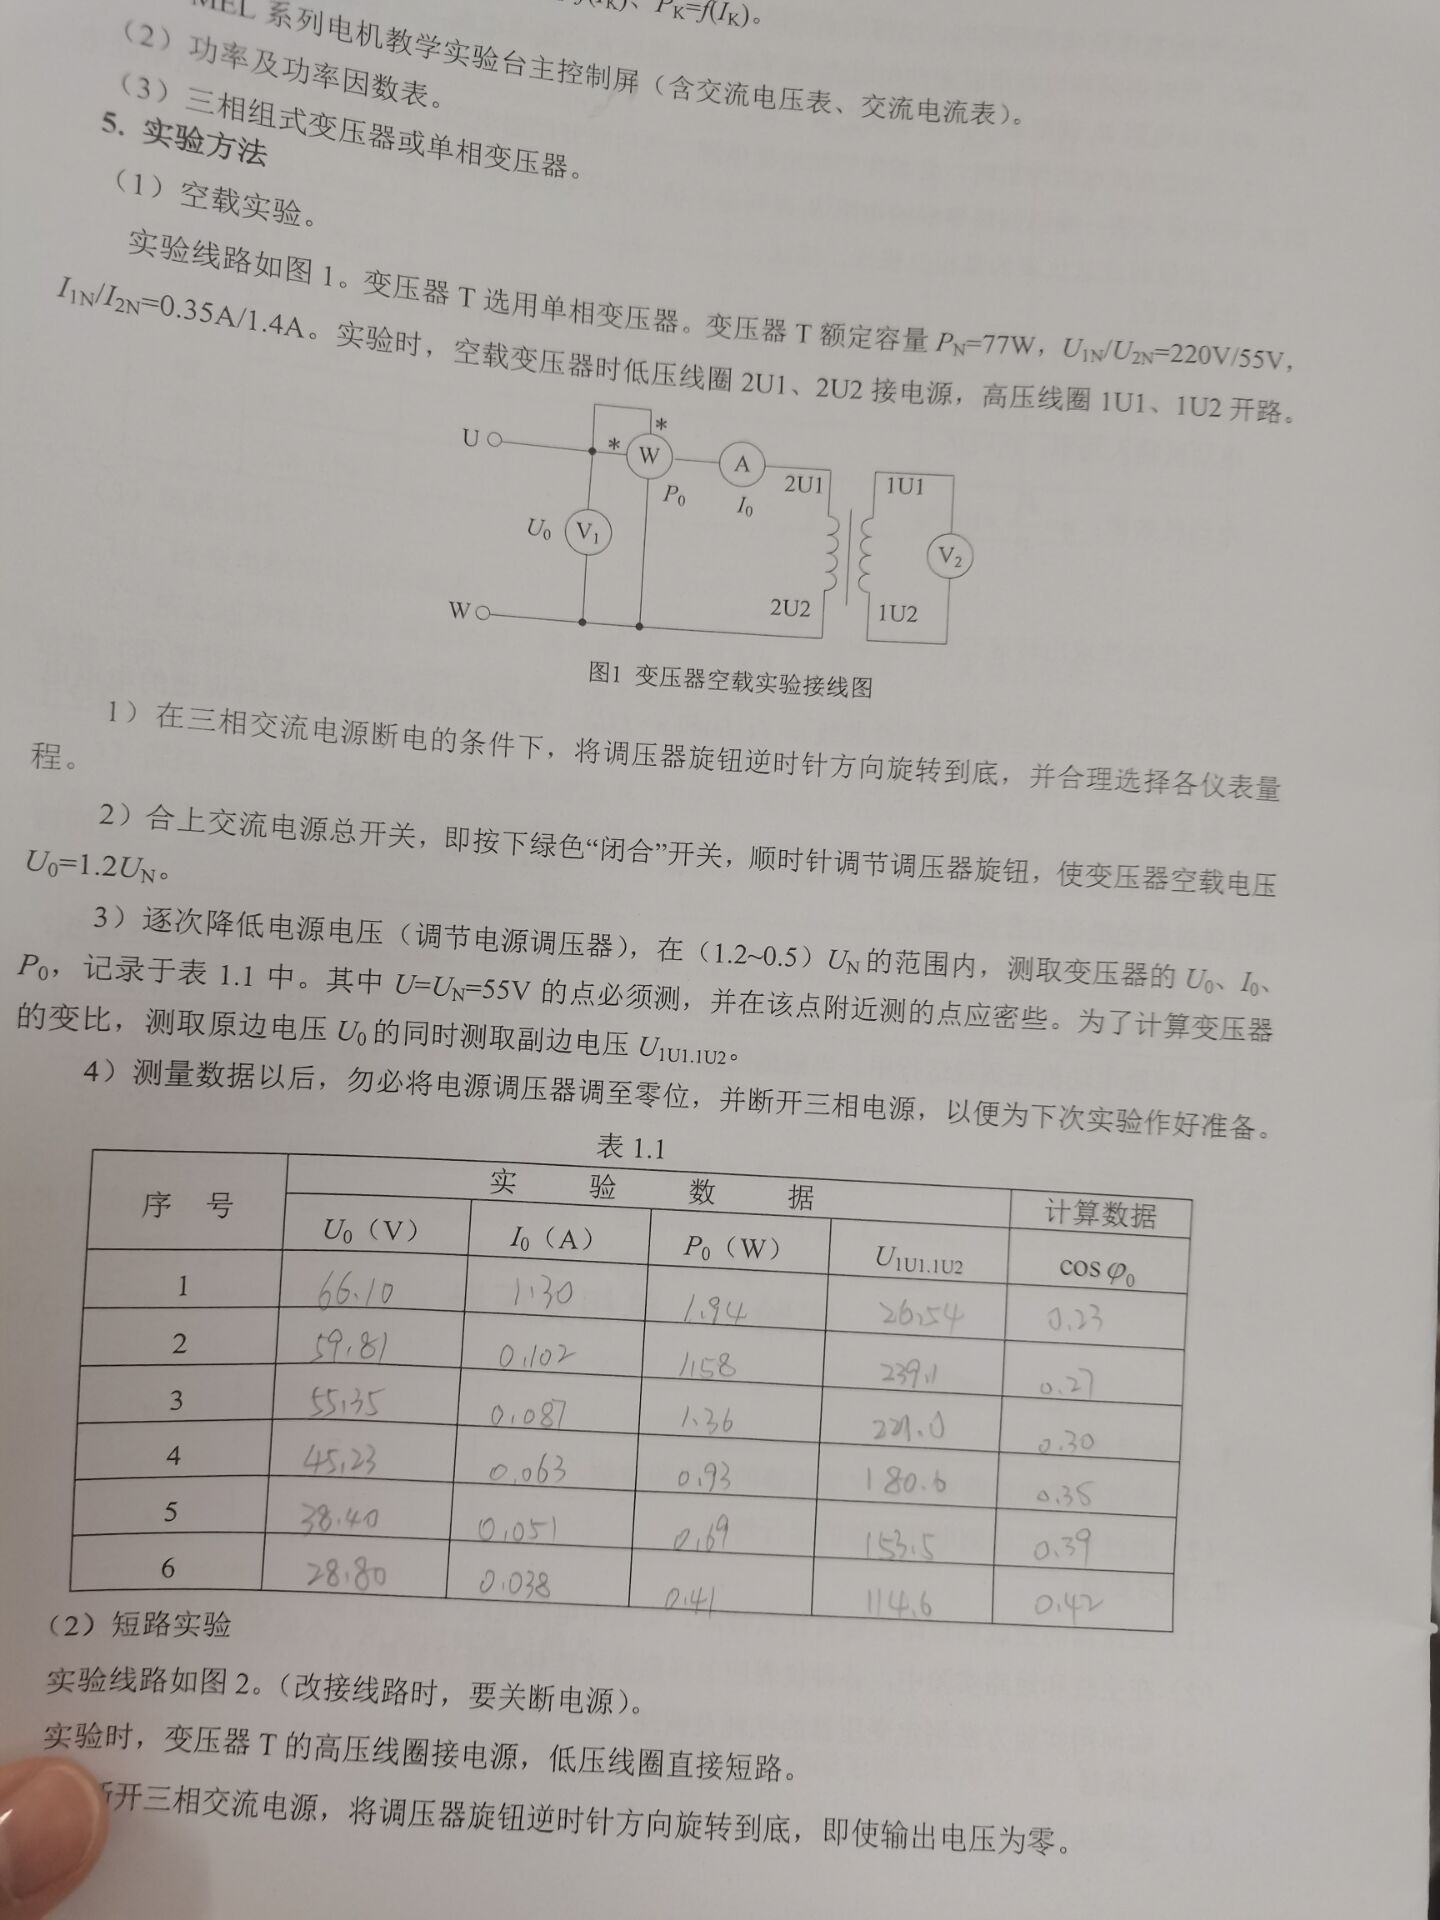 f(IK)、PK=f(IK)。
MEL 系列电机教学实验台主控制屏（含交流电压表、交流电流表）。
（2）功率及功率因数表。
（3）三相组式变压器或单相变压器。
5. 实验方法
（1）空载实验。
实验线路如图 1。变压器 T 选用单相变压器。变压器 T 额定容量 PN=77W，U1N/U2N=220V/55V，
I1N/I2N=0.35A/1.4A。实验时，空载变压器时低压线圈 2U1、2U2 接电源，高压线圈 1U1、1U2 开路。
U * * W A 2U1 1U1
P0 I0
U0 V1 V2
W 2U2 1U2
图1 变压器空载实验接线图
1）在三相交流电源断电的条件下，将调压器旋钮逆时针方向旋转到底，并合理选择各仪表量
程。
2）合上交流电源总开关，即按下绿色“闭合”开关，顺时针调节调压器旋钮，使变压器空载电压
U0=1.2UN。
3）逐次降低电源电压（调节电源调压器），在（1.2~0.5）UN 的范围内，测取变压器的 U0、I0、
P0，记录于表 1.1 中。其中 U=UN=55V 的点必须测，并在该点附近测的点应密些。为了计算变压器
的变比，测取原边电压 U0 的同时测取副边电压 U1U1.1U2。
4）测量数据以后，勿必将电源调压器调至零位，并断开三相电源，以便为下次实验作好准备。
表 1.1
序 号 实 验 数 据 计算数据
U0（V） I0（A） P0（W） U1U1.1U2 cos φ0
1 66.10 1.30 1.94 26.54 0.23
2 59.81 0.102 1.58 239.1 0.27
3 55.35 0.087 1.36 221.0 0.30
4 45.23 0.063 0.93 180.6 0.35
5 38.40 0.051 0.69 153.5 0.39
6 28.80 0.038 0.41 114.6 0.42
（2）短路实验
实验线路如图 2。（改接线路时，要关断电源）。
实验时，变压器 T 的高压线圈接电源，低压线圈直接短路。
开三相交流电源，将调压器旋钮逆时针方向旋转到底，即使输出电压为零。